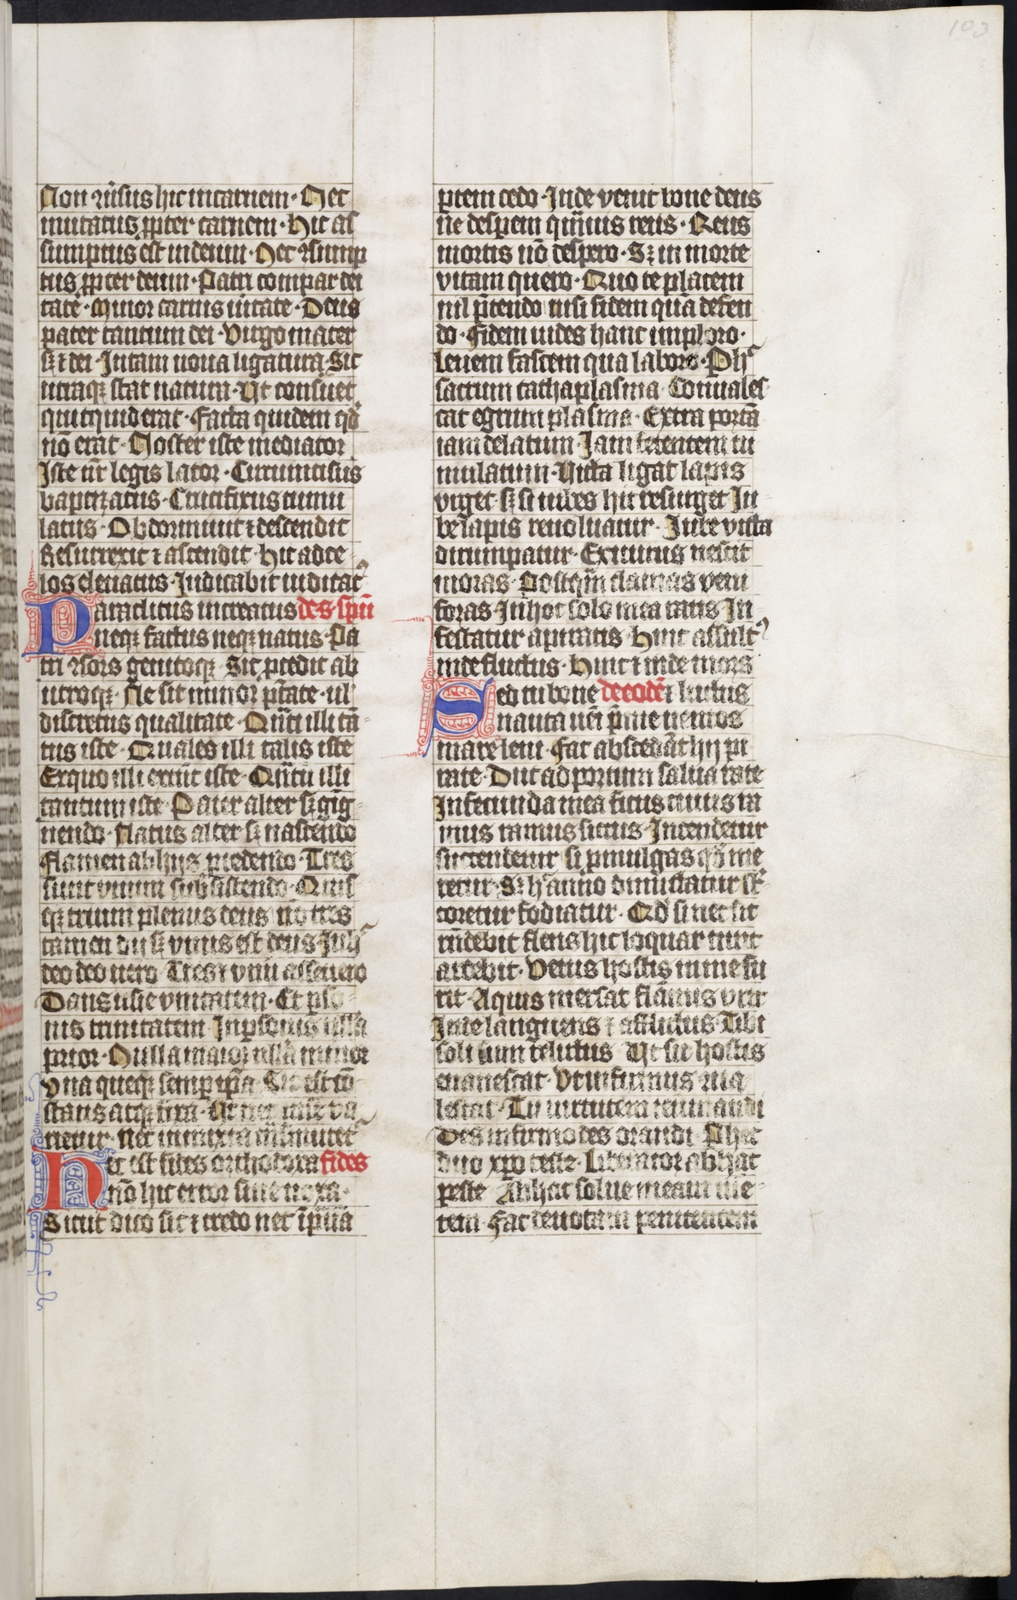 103
Non rursus hic in carnem · Nec
mutatus ppter carnem · Hic as
sumptus est in deum · Nec 9sump
tus ppter deum · Patri compar dei
tate · Minor carnis uitate · Deus
pater tantum dei · Virgo mater
sz & dei · In tam noua ligatura Sic
utraqz stat natura · Vt conseruet
quitquid erat · Facta quidem qd
nō erat · Noster iste mediator
Iste nr legis lator · Circumcisus
baptizatus · Crucifixus tumu
latus · Obdormiuit & descendit
Resurrexit & ascendit · Hic ad ce
los eleuatus · Iudicabit iudicat9
Paraclitus increatus des spū
neqz factus neqz natus · Pa
tri 9sors genitoqz · Sic procedit ab
utroqz · Ne sit minor ptate · ul
discretus qualitate · Qūti illi tā
tus iste · Quales illi talis iste
Ex quo illi exiūt iste · Qūtū illi
tantum iste · Pater alter sz gig
nendo · Natus alter sz nascendo
Flamen ab hijs procedendo · Tres
sunt vnum subsistendo · Quis
qz trium plenus deus nō tres
tamen dij sz vnus est deus In h
deo deo uero Tres & vnū asseuero
Dans usie vnitatem · Et pso
nis trinitatem In psonis nulla
prior · Nulla maior nulla minor
Vna queqz semp ipa Sic est cō
stans atqz fixa · Ut nec in se va
rietur · nec in mixta transmutet
Hec est fides orthodoxa fides
nō hic error siue noxa ·
Sicut dico sic & credo nec ī prauā
ptem cedo · Inde venit bone deus
ne desperem quūuis reus · Reus
mortis nō despero · Sz in morte
vitam quero · Quo te placem
nil ptendo nisi fidem quā defen
do · Fidem uides hanc imploro ·
leuem fascem qua laboro · P h
sacrum cathaplasma Conuales
cat egrum plasma · Extra portā
iam delatum · Iam fetentem tu
mulatum · Vitta ligat lapis
vrget sz si iubes hic resurget Iu
be lapis reuoluatur · Iube vitta
dirumpatur · Exiturus nescit
moras · Postqm clamas veni
foras In hoc solo mea ratis In
festatur a piratis · Hinc assult9
inde fluctus · Hinc & inde mors
Sed tu bone de eodē & luctus
nauta ueni preme uentos
mare leni · Fac abscedāt hij pi
rate · Duc ad portum salua rate
Infecunda mea ficus cuius ra
mus ramus siccus · Incendetur
incendetur si pmulgas qd me
retur · Sz h anno dimittatur st
coretur fodiatur · Qd si nec sic
rndebit flens hic loquar tunc
ardebit · Vetus hostis in me fu
rit · Aquis mersat flāmis vrit
Inde languens & afflictus Tibi
soli sum relictus Vt sic hostis
euanescat · Vt infirmus ua
lescat · Tu uirtutem ieiunandi
Des infirmo des orandi · P hec
duo xpo teste · Liberator ab hac
peste Ab hac solue meam me
tem · Fac deuotam penitentem